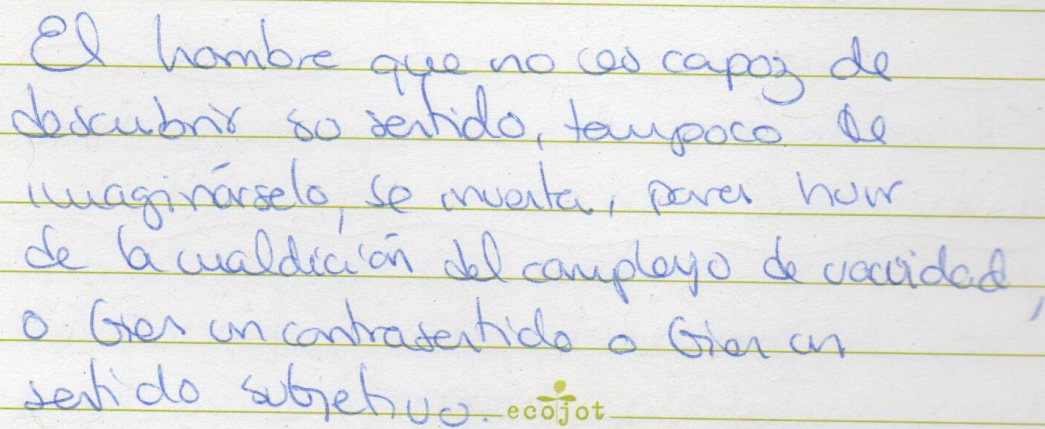 El hombre que no es capaz de
descubrir su sentido, tampoco de
imaginárselo, se inventa, para huir
de la maldición del complejo de vacuidad,
o bien un contrasentido o bien un
sentido subjetivo. ecojot